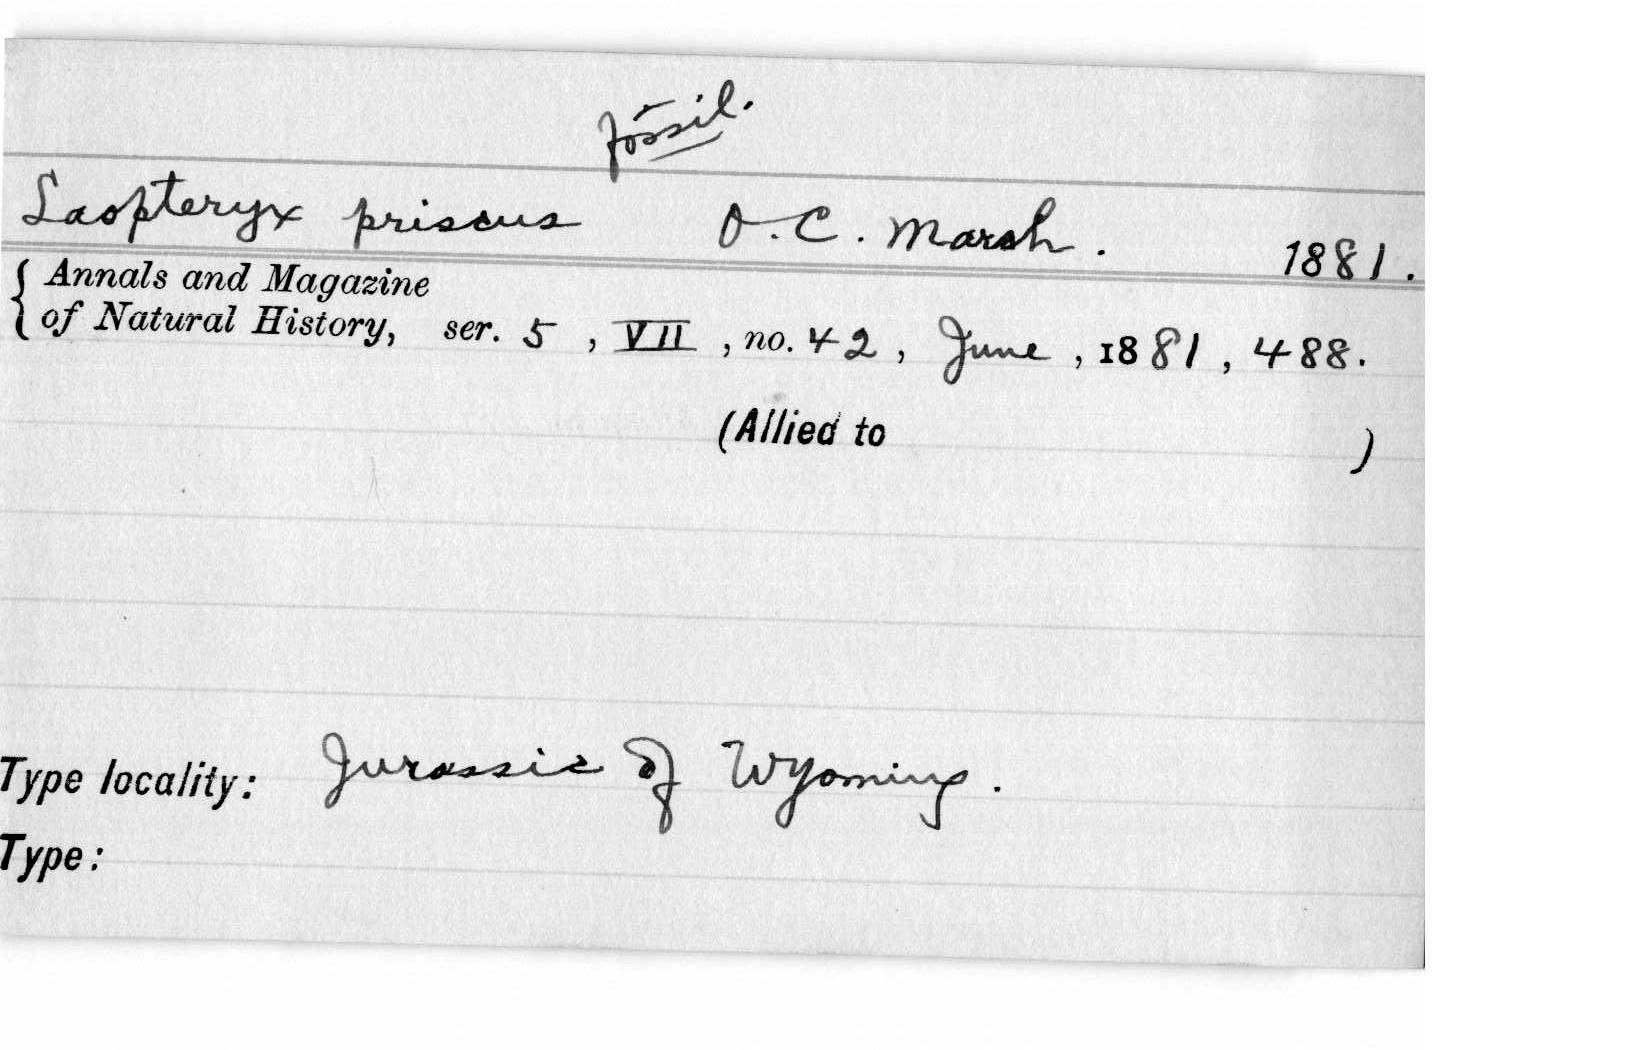 fossil.
Laopteryx priscus O. C. Marsh. 1881.
{ Annals and Magazine
of Natural History, ser. 5, VII, no. 42, June, 1881, 488.
(Allied to )
Type locality: Jurassic of Wyoming.
Type: